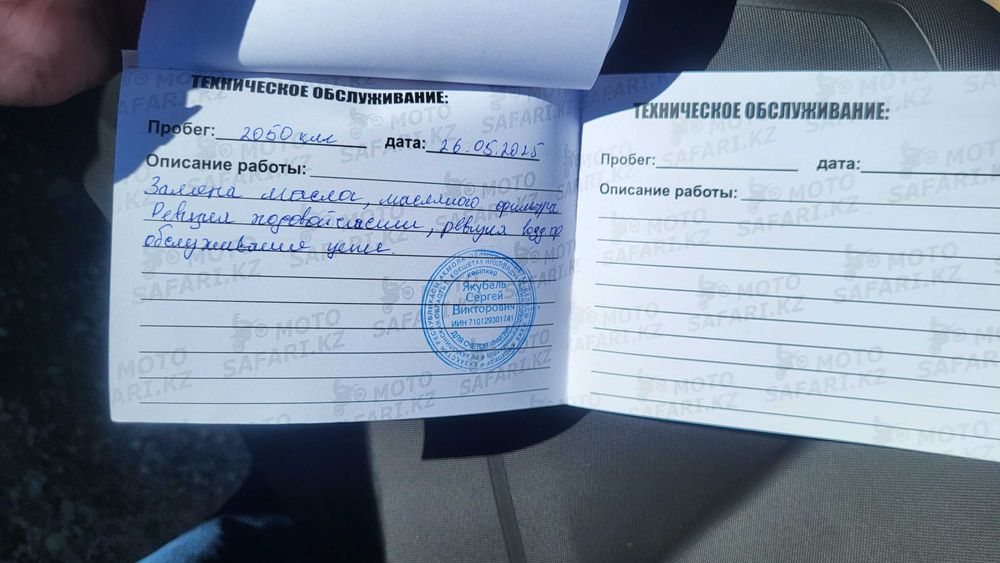 ТЕХНИЧЕСКОЕ ОБСЛУЖИВАНИЕ:
Пробег: 2050 км дата: 26.05.2025
Описание работы:
Замена масла, масляного фильтра
Ревизия ходовой части, ревизия возд ф
обслуживание цепи.
кәсіпкер
Якубель
Сергей
Викторович
ИИН 710129301741
ДЛЯ СЧЕТОВ-ФАКТУР
ТЕХНИЧЕСКОЕ ОБСЛУЖИВАНИЕ:
Пробег: дата:
Описание работы:
MOTO
SAFARI.KZ